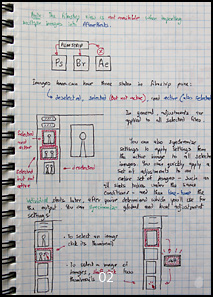 Note: The filmstrip view is not available when importing
multiple images into Aftereffects.
FILMSTRIP
Ps
Br
Ae
Images here can have three states in filmstrip pane:
deselected, selected (but not active), and active (also selected)
In general, adjustments are
applied to all selected files.
Selected
and
active
Selected
but not
active
deselected
You can also synchronise
settings to apply settings from
the active image to all selected
images. You can quickly apply a
set of adjustments to an
entire set of images - such as
all shots taken under the same
conditions - and then fine-tune the
individual shots later, after you've determined which you'll use for
the output. You can synchronise global and local adjustment
settings.
To select an image
click its thumbnail
To select a range of
images,
thumbnails
02